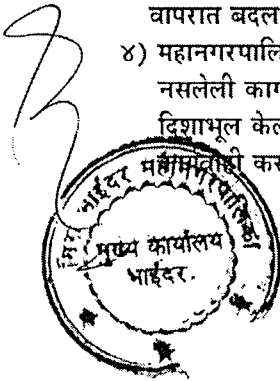 वापरात बदल
४) महानगरपालि
नसलेली काग
दिशाभूल केल
भाईंदर महानगरपालिका
मुख्य कार्यालय
भाईंदर.